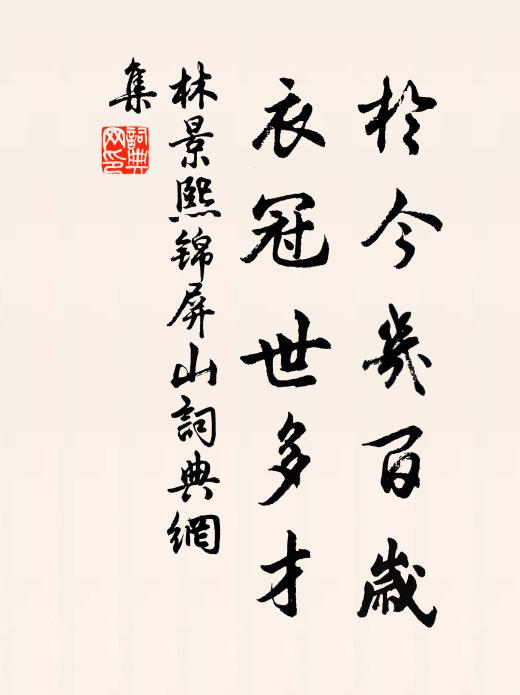 於今幾百歲
衣冠世多才
林景熙錦屏山詞典網
集
詞典
网印